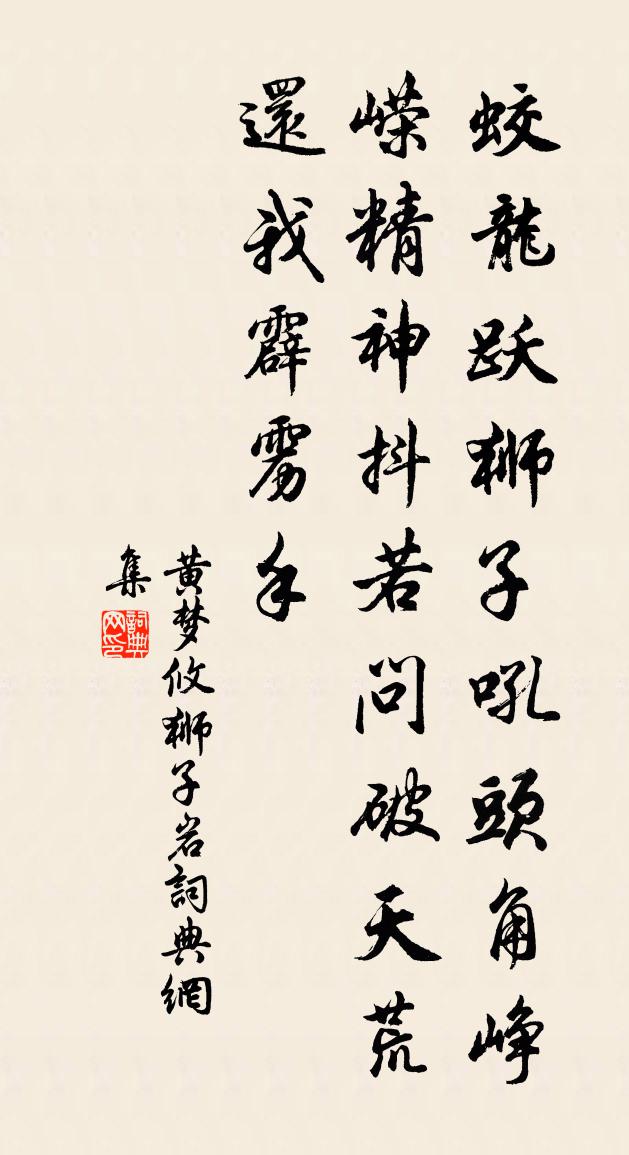 蛟龍跃狮子吼頭角峥
嵘精神抖若問破天荒
還我霹雳手
黄梦攸狮子岩詞典網
集
詞典网印